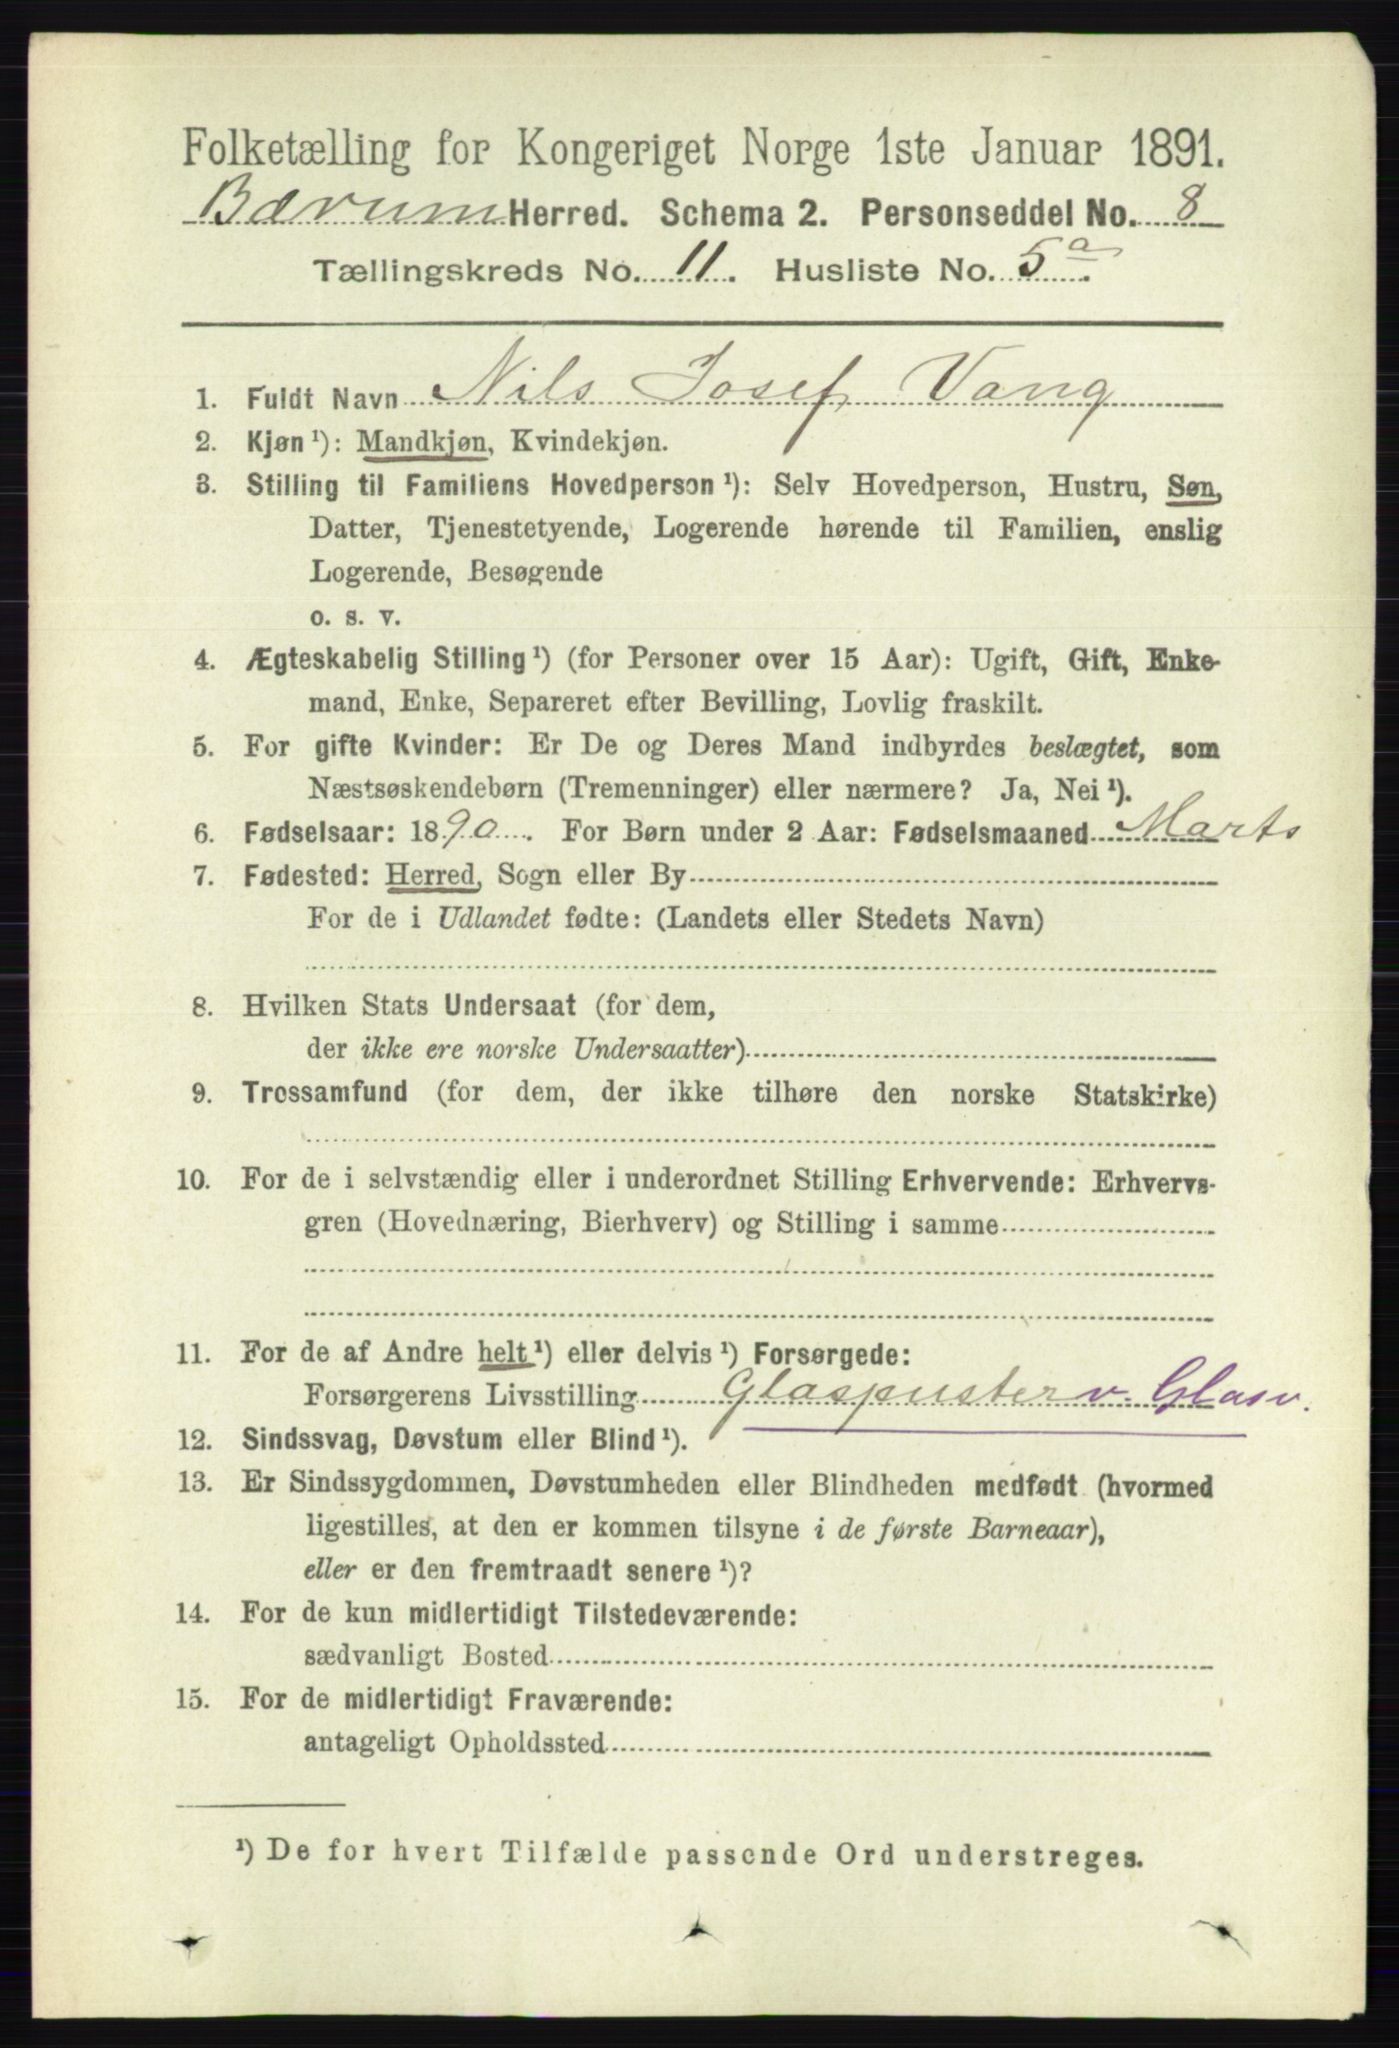 Folketælling for Kongeriget Norge 1ste Januar 1891.
Bærum Herred. Schema 2. Personseddel No. 8
Tællingskreds No. 11. Husliste No. 5a.
1. Fuldt Navn Nils Josef Vang
2. Kjøn ¹): Mandkjøn, Kvindekjøn.
3. Stilling til Familiens Hovedperson ¹): Selv Hovedperson, Hustru, Søn,
Datter, Tjenestetyende, Logerende hørende til Familien, enslig
Logerende, Besøgende
o. s. v.
4. Ægteskabelig Stilling ¹) (for Personer over 15 Aar): Ugift, Gift, Enke-
mand, Enke, Separeret efter Bevilling, Lovlig fraskilt.
5. For gifte Kvinder: Er De og Deres Mand indbyrdes beslægtet, som
Næstsøskendebørn (Tremenninger) eller nærmere? Ja, Nei ¹).
6. Fødselsaar: 1890. For Børn under 2 Aar: Fødselsmaaned Marts
7. Fødested: Herred, Sogn eller By
For de i Udlandet fødte: (Landets eller Stedets Navn)
8. Hvilken Stats Undersaat (for dem,
der ikke ere norske Undersaatter)
9. Trossamfund (for dem, der ikke tilhøre den norske Statskirke)
10. For de i selvstændig eller i underordnet Stilling Erhvervende: Erhvervs-
gren (Hovednæring, Bierhverv) og Stilling i samme
11. For de af Andre helt ¹) eller delvis ¹) Forsørgede:
Forsørgerens Livsstilling Glaspuster v. Glasv.
12. Sindssvag, Døvstum eller Blind ¹).
13. Er Sindssygdommen, Døvstumheden eller Blindheden medfødt (hvormed
ligestilles, at den er kommen tilsyne i de første Barneaar),
eller er den fremtraadt senere ¹)?
14. For de kun midlertidigt Tilstedeværende:
sædvanligt Bosted
15. For de midlertidigt Fraværende:
antageligt Opholdssted
¹) De for hvert Tilfælde passende Ord understreges.